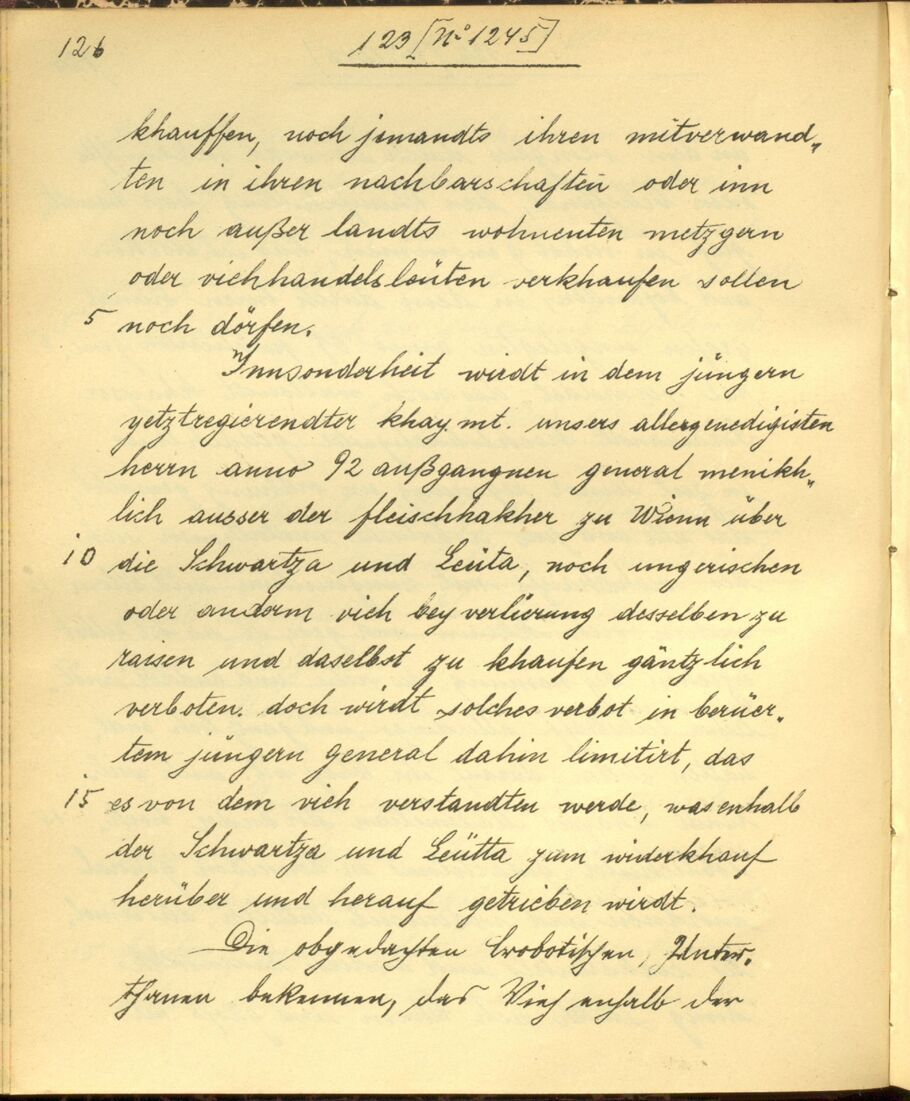 126
123 [N° 1245]
khauffen, noch jemandts ihren mitverwand„
ten in ihren nachbarschafften oder inn
noch außer landts wohnenten metzgern
oder viehhandelsleüten verkhaufen sollen
5 noch dörfen.
Innsonderheit wirdt in dem jüngern
yetztregierendter khay. mt. unsers allergenedigisten
herrn anno 92 außgangnen general menikh„
lich ausser der fleischhakher zu Wienn über
10 die Schwartza und Leüta, noch ungerischen
oder anderm vich bey verlierung desselben zu
raisen und daselbst zu khaufen gäntzlich
verboten. doch wirdt solches verbot in berüer„
tem jüngern general dahin limitirt, das
15 es von dem vich verstandten werde, was enhalb
der Schwartza und Leütta zum widerkhauf
herüber und herauf getrieben wirdt.
Die obgedachten Crobotischen Unter„
thanen bekennen, das Vieh enhalb der